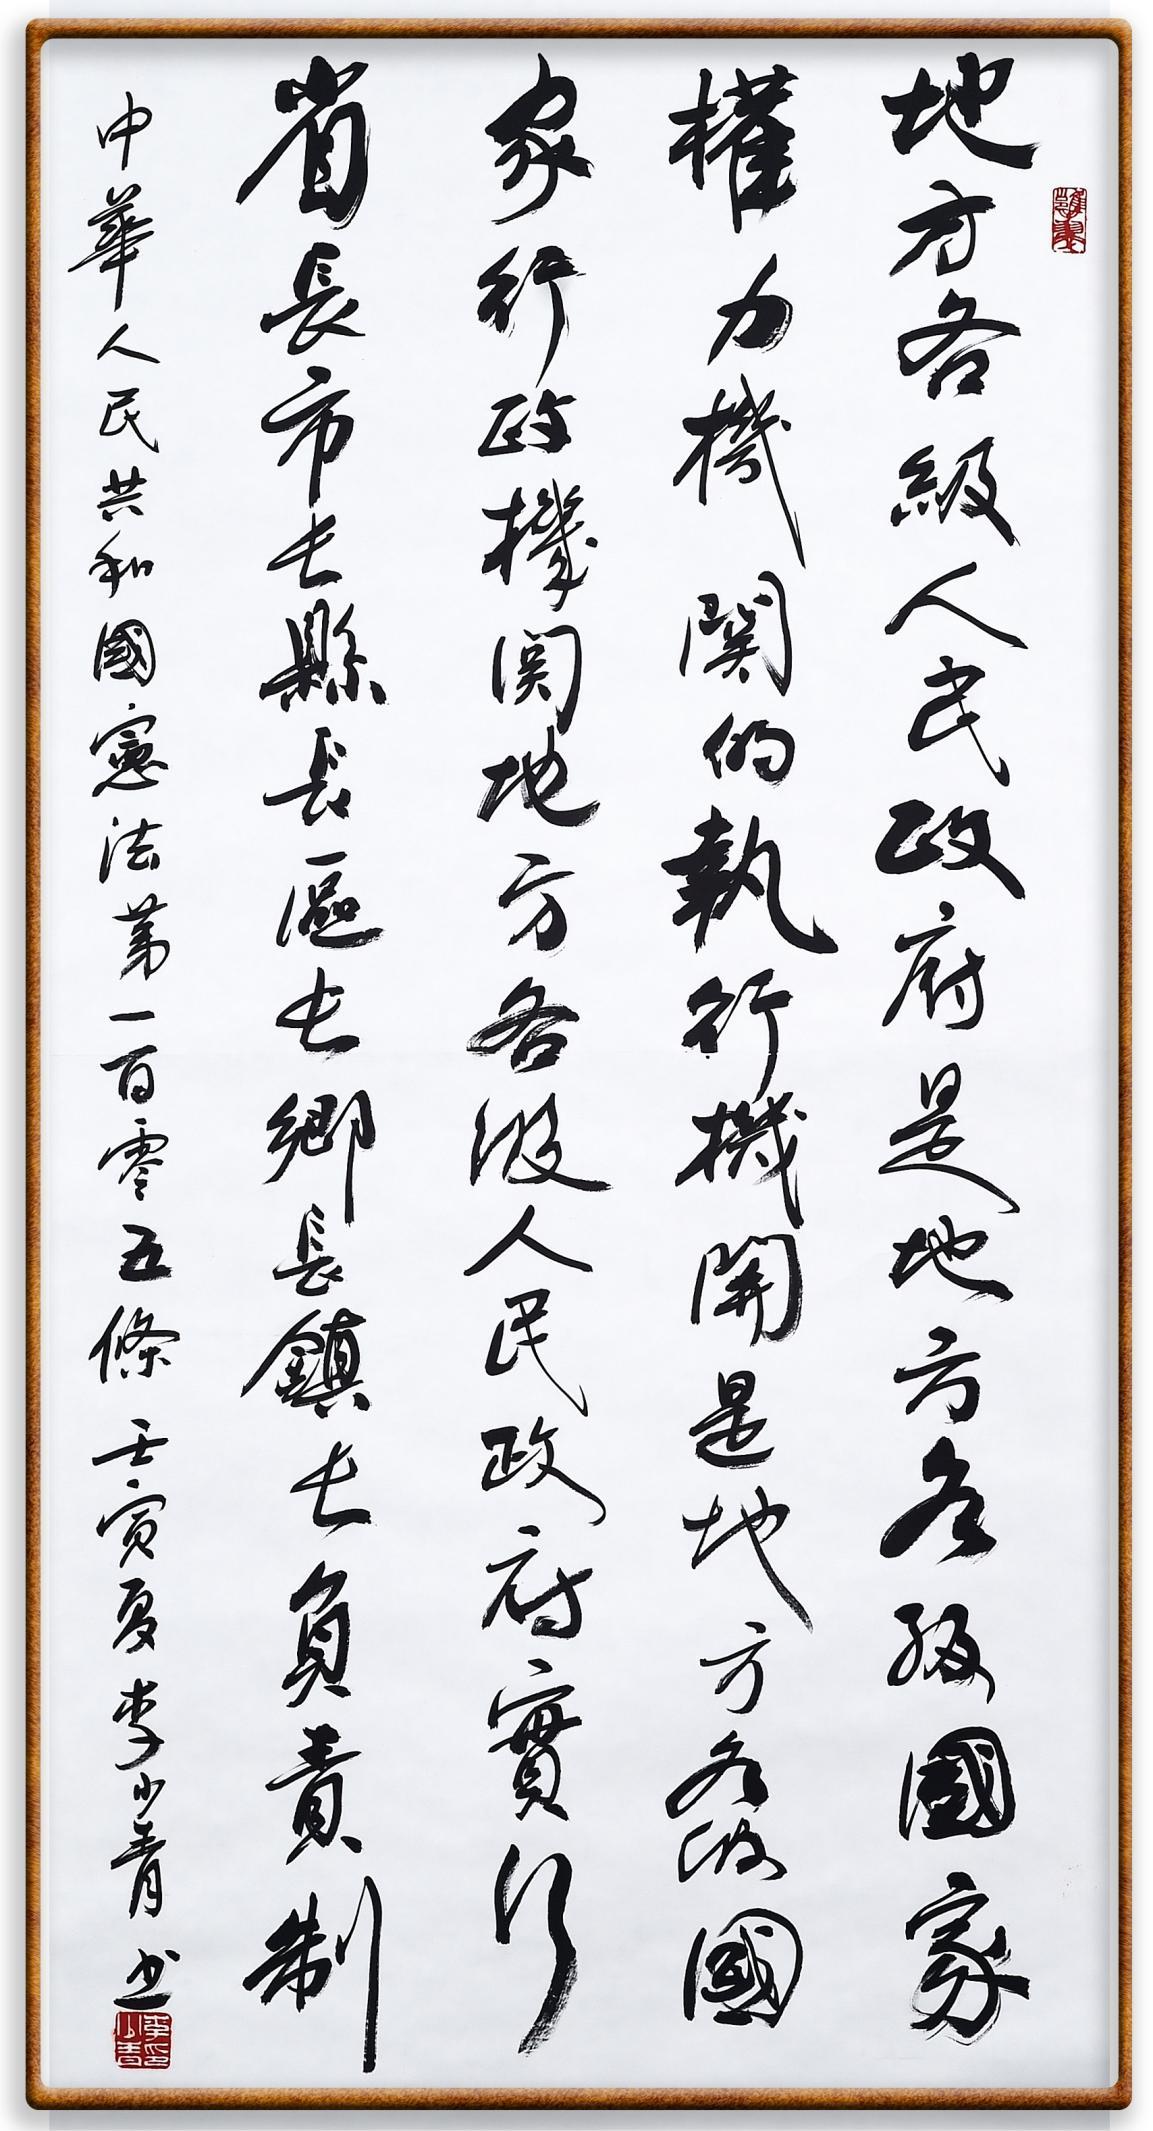 地方各級人民政府是地方各級國家
權力機關的執行機關是地方各級國
家行政機關地方各級人民政府實行
省長市長縣長區長鄉長鎮長負責制
中華人民共和國憲法第一百零五條 壬寅夏 李少青书
李少青印